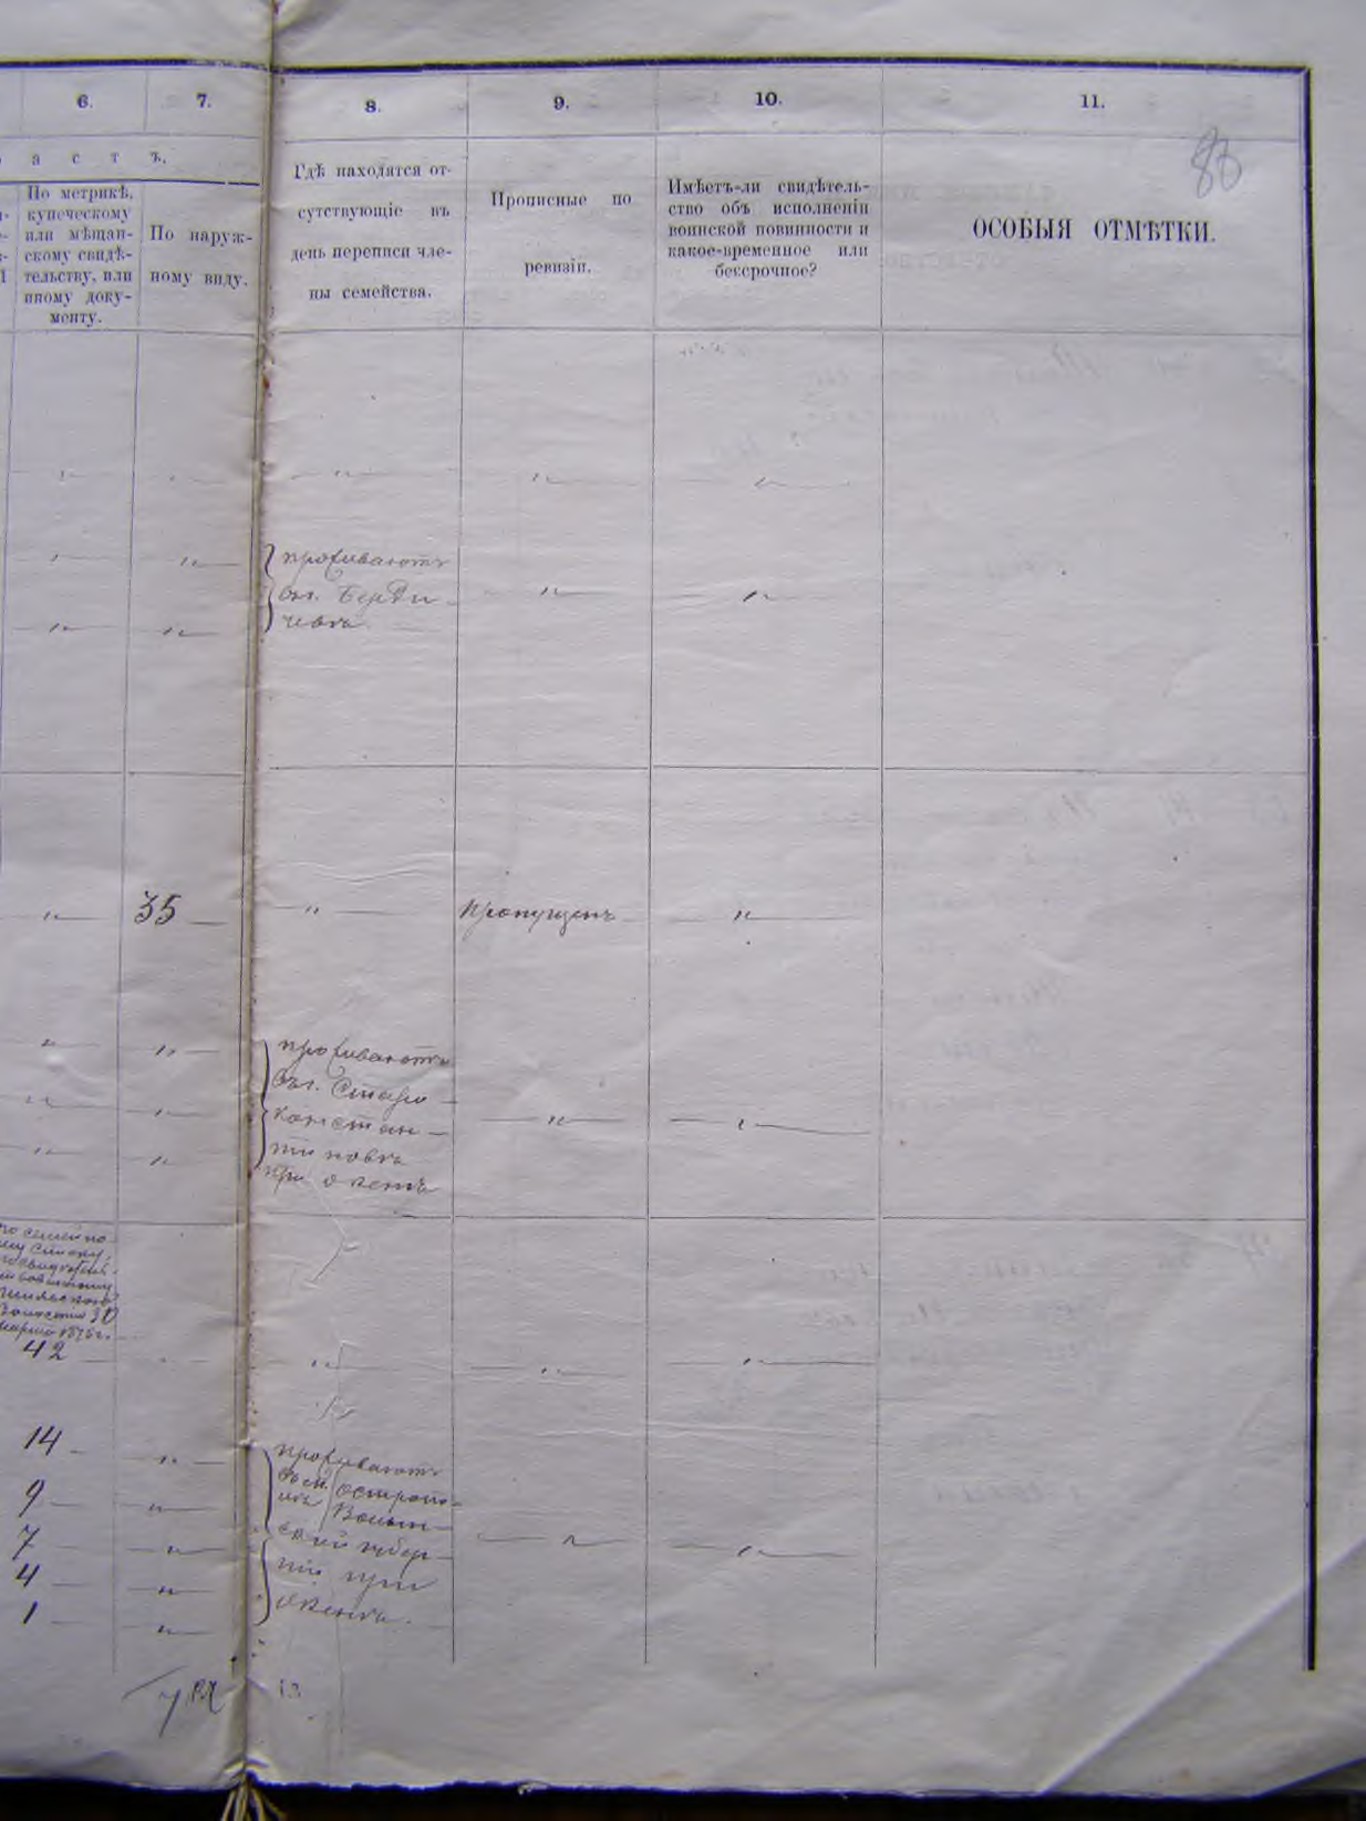 6.
7.
8.
9.
10.
11.
86
а с т ъ.
По метрикѣ,
купеческому
или мѣщан-
скому свидѣ-
тельству, или
иному доку-
менту.
По наруж-
ному виду.
Гдѣ находятся от-
сутствующіе въ
день переписи чле-
ны семейства.
Прописные по
ревизіи.
Имѣетъ-ли свидѣтель-
ство объ исполненіи
воинской повинности и
какое-временное или
безсрочное?
ОСОБЫЯ ОТМѢТКИ.
проживаютъ
въ г. Берди-
чевѣ.
35
пропущенъ
проживаютъ
въ г. Старо-
констан-
тиновѣ
при отцѣ
марта 1875 г.
42
14
9
7
4
1
проживаютъ
въ м. Острапо-
Волын-
ской губер-
ніи при